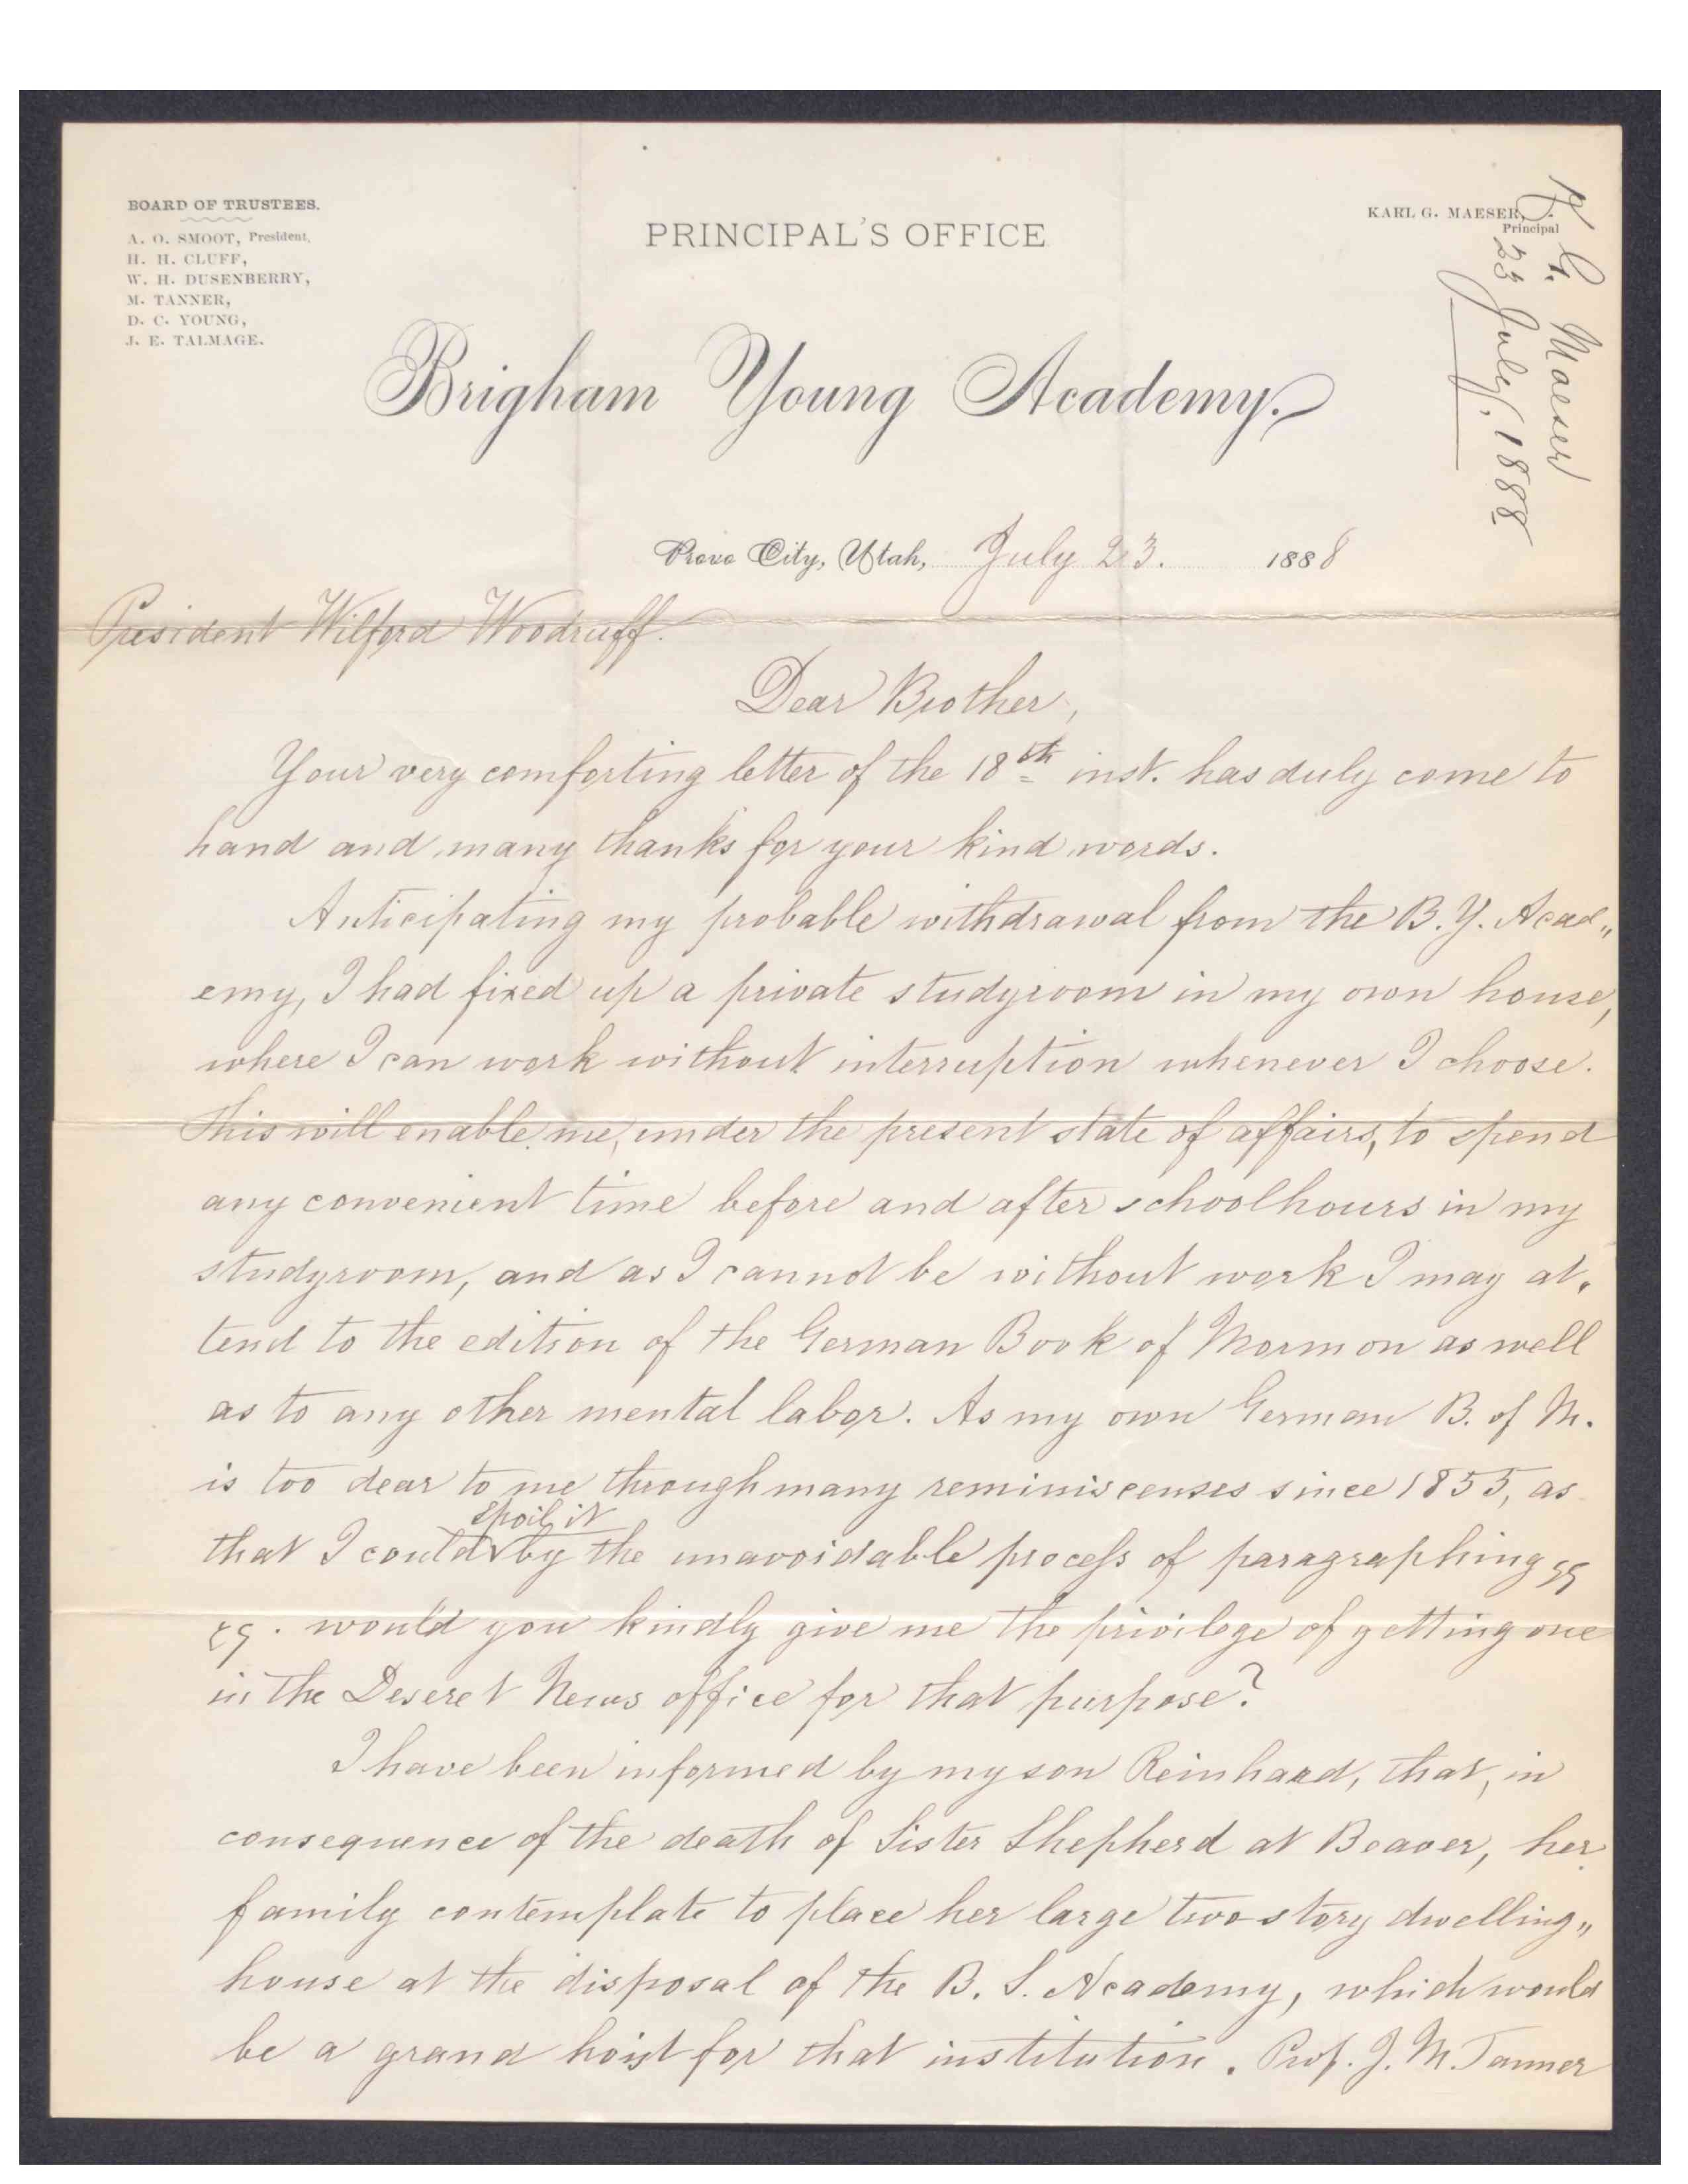 BOARD OF TRUSTEES.
A. O. SMOOT, President,
H. H. CLUFF,
W. H. DUSENBERRY,
M. TANNER,
D. C. YOUNG,
J. E. TALMAGE.
PRINCIPAL'S OFFICE
KARL G. MAESER,
Principal
K. G. Maeser
23 July, 1888
Brigham Young Academy.
Provo City, Utah, July 23. 1888
President Wilford Woodruff.
Dear Brother,
Your very comforting letter of the 18th inst. has duly come to
hand and many thanks for your kind words.
Anticipating my probable withdrawal from the B. Y. Acad„
emy, I had fixed up a private studyroom in my own house,
where I can work without interruption whenever I choose.
This will enable me, under the present state of affairs, to spend
any convenient time before and after schoolhours in my
studyroom, and as I cannot be without work I may at„
tend to the edition of the German Book of Mormon as well
as to any other mental labor. As my own German B. of M.
is too dear to me through many reminiscenses since 1855, as
spoil it
that I could by the unavoidable process of paragraphing
would you kindly give me the privilege of getting one
in the Deseret News office for that purpose?
I have been informed by my son Reinhard, that, in
consequence of the death of Sister Shepherd at Beaver, her
family contemplate to place her large two-story dwelling„
house at the disposal of the B. S. Academy, which would
be a grand hoist for that institution. Prof. J. M. Tanner